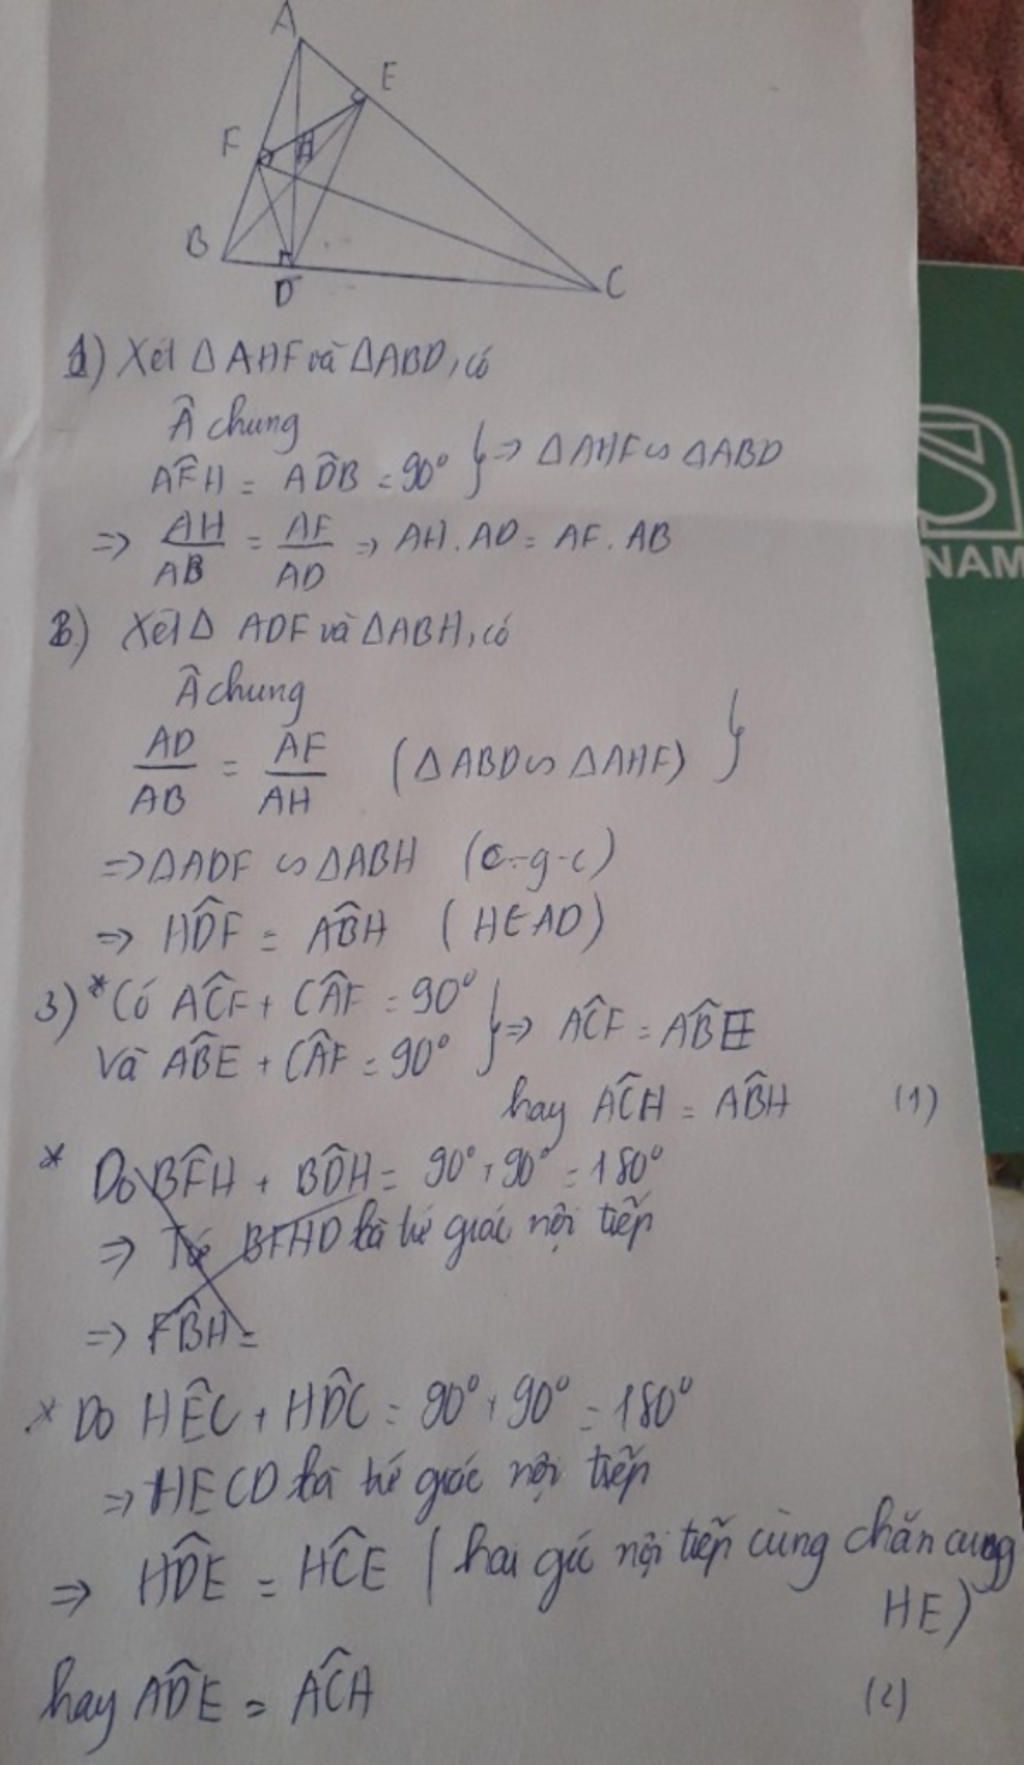 A
E
F
H
B
D
C
1) Xét △AHF và △ABD, có
Â chung
AF̂H = AD̂B = 90° } => △AHF ∽ △ABD
=> AH/AB = AF/AD => AH.AD = AF.AB
2) Xét △ ADF và △ABH, có
Â chung
AD/AB = AF/AH (△ABD ∽ △AHF) }
=> △ADF ∽ △ABH (c-g-c)
=> HD̂F = AB̂H (H∈AD)
3) * Có AĈF + CÂF = 90°
Và AB̂E + CÂF = 90° } => AĈF = AB̂E
hay AĈH = AB̂H (1)
* Do BF̂H + BD̂H = 90° + 90° = 180°
=> Tứ BFHD là tứ giác nội tiếp
=> FB̂H =
* Do HÊC + HD̂C = 90° + 90° = 180°
=> HECD là tứ giác nội tiếp
=> HD̂E = HĈE (hai góc nội tiếp cùng chắn cung
HE)
hay AD̂E = AĈH (2)
NAM